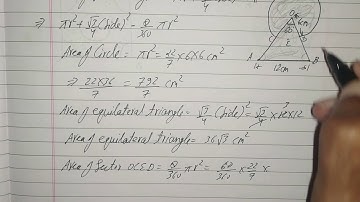 ⇒ πr² + √3/4 (side)² - θ/360 πr²
Area of Circle = πr² = 22/7 × 6×6 cm²
⇒ 22×36/7 = 792/7 cm²
Area of equilateral triangle = √3/4 (side)² = √3/4 × 12×12
3
Area of equilateral triangle = 36√3 cm²
Area of Sector OCED = θ/360 πr² = 60/360 × 22/7 ×
O 6cm
60°
E
A B
12cm